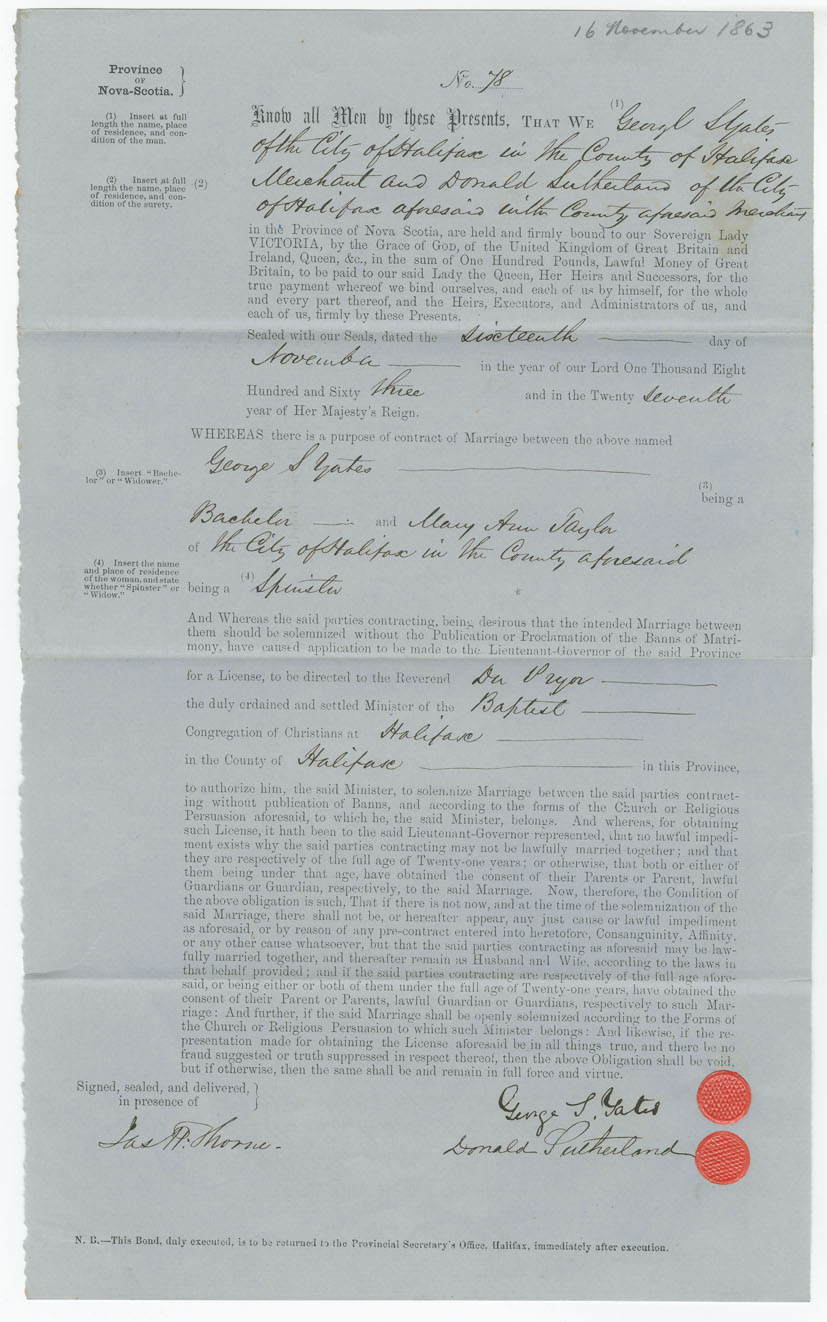 16 November 1863
Province
OF
Nova-Scotia.
No. 78
(1) Insert at full
length the name, place
of residence, and con-
dition of the man.
Know all Men by these Presents, THAT WE (1) George S Yates
of the City of Halifax in the County of Halifax
(2) Insert at full
length the name, place
of residence, and con-
dition of the surety.
(2) Merchant and Donald Sutherland of the City
of Halifax aforesaid in the County aforesaid Merchant
in the Province of Nova Scotia, are held and firmly bound to our Sovereign Lady
VICTORIA, by the Grace of GOD, of the United Kingdom of Great Britain and
Ireland, Queen, &c., in the sum of One Hundred Pounds, Lawful Money of Great
Britain, to be paid to our said Lady the Queen, Her Heirs and Successors, for the
true payment whereof we bind ourselves, and each of us by himself, for the whole
and every part thereof, and the Heirs, Executors, and Administrators of us, and
each of us, firmly by these Presents.
Sealed with our Seals, dated the Sixteenth day of
November in the year of our Lord One Thousand Eight
Hundred and Sixty three and in the Twenty seventh
year of Her Majesty's Reign.
WHEREAS there is a purpose of contract of Marriage between the above named
George S Yates
(3) Insert "Bache-
lor" or "Widower."
(3)
being a
Bachelor and Mary Ann Taylor
of the City of Halifax in the County aforesaid
(4) Insert the name
and place of residence
of the woman, and state
whether "Spinster" or
"Widow."
being a (4) Spinster
And Whereas the said parties contracting, being desirous that the intended Marriage between
them should be solemnized without the Publication or Proclamation of the Banns of Matri-
mony, have caused application to be made to the Lieutenant-Governor of the said Province
for a License, to be directed to the Reverend Dr Pryor
the duly ordained and settled Minister of the Baptist
Congregation of Christians at Halifax
in the County of Halifax in this Province,
to authorize him, the said Minister, to solemnize Marriage between the said parties contract-
ing without publication of Banns, and according to the forms of the Church or Religious
Persuasion aforesaid, to which he, the said Minister, belongs. And whereas, for obtaining
such License, it hath been to the said Lieutenant-Governor represented, that no lawful impedi-
ment exists why the said parties contracting may not be lawfully married together; and that
they are respectively of the full age of Twenty-one years; or otherwise, that both or either of
them being under that age, have obtained the consent of their Parents or Parent, lawful
Guardians or Guardian, respectively, to the said Marriage. Now, therefore, the Condition of
the above obligation is such, That if there is not now, and at the time of the solemnization of the
said Marriage, there shall not be, or hereafter appear, any just cause or lawful impediment
as aforesaid, or by reason of any pre-contract entered into heretofore, Consanguinity, Affinity,
or any other cause whatsoever, but that the said parties contracting as aforesaid may be law-
fully married together, and thereafter remain as Husband and Wife, according to the laws in
that behalf provided; and if the said parties contracting are respectively of the full age afore-
said, or being either or both of them under the full age of Twenty-one years, have obtained the
consent of their Parent or Parents, lawful Guardian or Guardians, respectively to such Mar-
riage: And further, if the said Marriage shall be openly solemnized according to the Forms of
the Church or Religious Persuasion to which such Minister belongs: And likewise, if the re-
presentation made for obtaining the License aforesaid be in all things true, and there be no
fraud suggested or truth suppressed in respect thereof, then the above Obligation shall be void,
but if otherwise, then the same shall be and remain in full force and virtue.
Signed, sealed, and delivered,
in presence of
George S. Yates
Jas H. Thorne
Donald Sutherland
N. B.—This Bond, duly executed, is to be returned to the Provincial Secretary's Office, Halifax, immediately after execution.